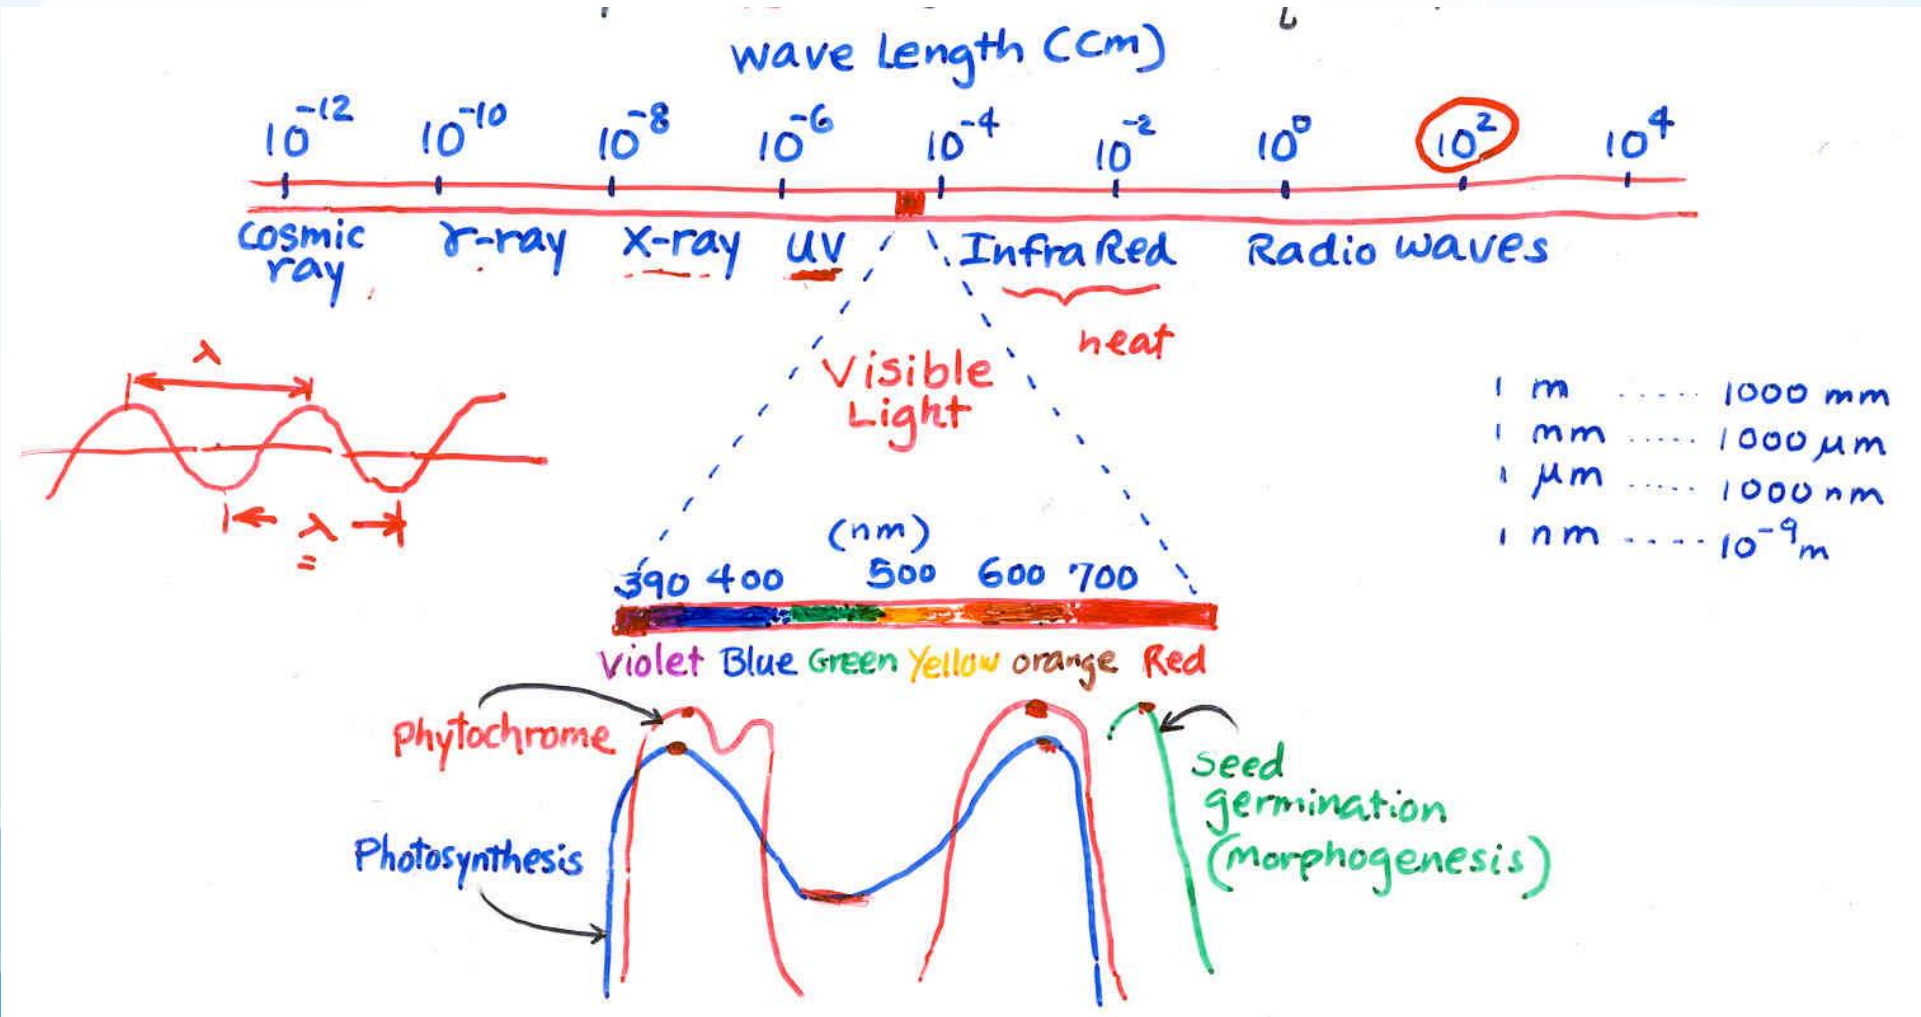 wave Length (Cm)
10^-12 10^-10 10^-8 10^-6 10^-4 10^-2 10^0 10^2 10^4
Cosmic ray γ-ray X-ray UV InfraRed Radio waves
heat
Visible
Light
λ
λ
1 m ..... 1000 mm
1 mm ..... 1000 μm
1 μm ..... 1000 nm
1 nm ..... 10^-9 m
(nm)
390 400 500 600 700
Violet Blue Green Yellow orange Red
Phytochrome
Photosynthesis
Seed
germination
(morphogenesis)